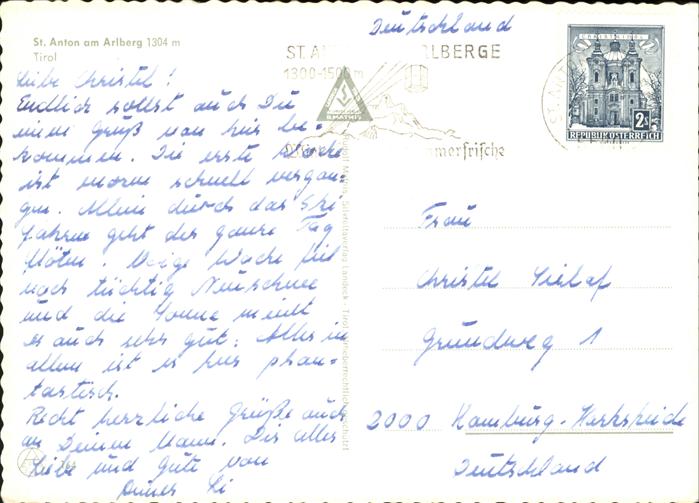 St. Anton am Arlberg 1304 m
Tirol
Deutschland
ST. A LBERGE
1300-1500 m
B. MATHIS
mmerfrische
CHRISTKINDL
2 S
REPUBLIK ÖSTERREICH
Liebe Christel!
Endlich sollst auch Du
einen Gruß von hier be-
kommen. Die erste Woche
ist enorm schnell vergan-
gen. Allein durch das Ski
fahren geht der ganze Tag
flöten. Vorige Woche fiel
noch tüchtig Neuschnee
und die Sonne meint
es auch sehr gut. Alles in
allem ist es hier phan-
tastisch.
Recht herzliche Grüße auch
an Deinen Mann. Dir alles
Liebe und Gute von
Deiner
Frau
Christel
Grundweg 1
2000 Hamburg-
Deutschland